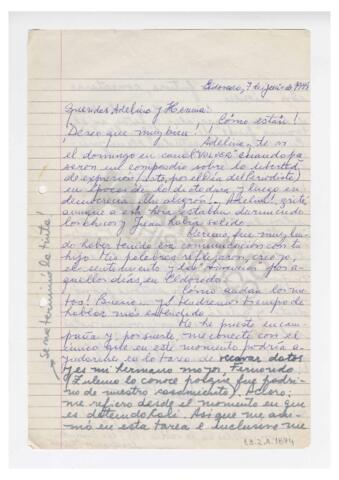 Eldorado, 7 de junio de 1998
Queridas Adelina y Herenia:
¿Cómo están?
¡Deseo que muy bien!!
Adelina, te vi
el domingo en canal "VOLVER" cuando pa-
saron un compacto sobre la libertad
de expresión (esto, por el Día del Periodista)
en época de la dictadura y luego en
democracia. ¡Qué alegría! ¡Adelina! grité
aunque a esa hora estaban durmiendo
los chicos y Juan había salido.
Herenia, fue muy lin-
do haber tenido esa comunicación con tu
hijo. Mis palabras reflejaron, creo yo,
el sentimiento y las
aquellos días, en Eldorado.
¿Cómo andan los nie-
tos? Bueno... ya tendremos tiempo de
hablar más extendido.
Me he puesto en cam-
paña y, por suerte, me conecté con el
único que en este momento podría a-
yudarme en la tarea de recavar datos
y es mi hermano mayor, Fernando
(Zulema lo conoce porque fue padri-
no de nuestro casamiento). Aclaro:
me refiero desde el momento en que
es detenido Lali. Así que me ani-
mó en esta tarea e inclusive me
Se me terminó la tinta!
EB.2.A.1674